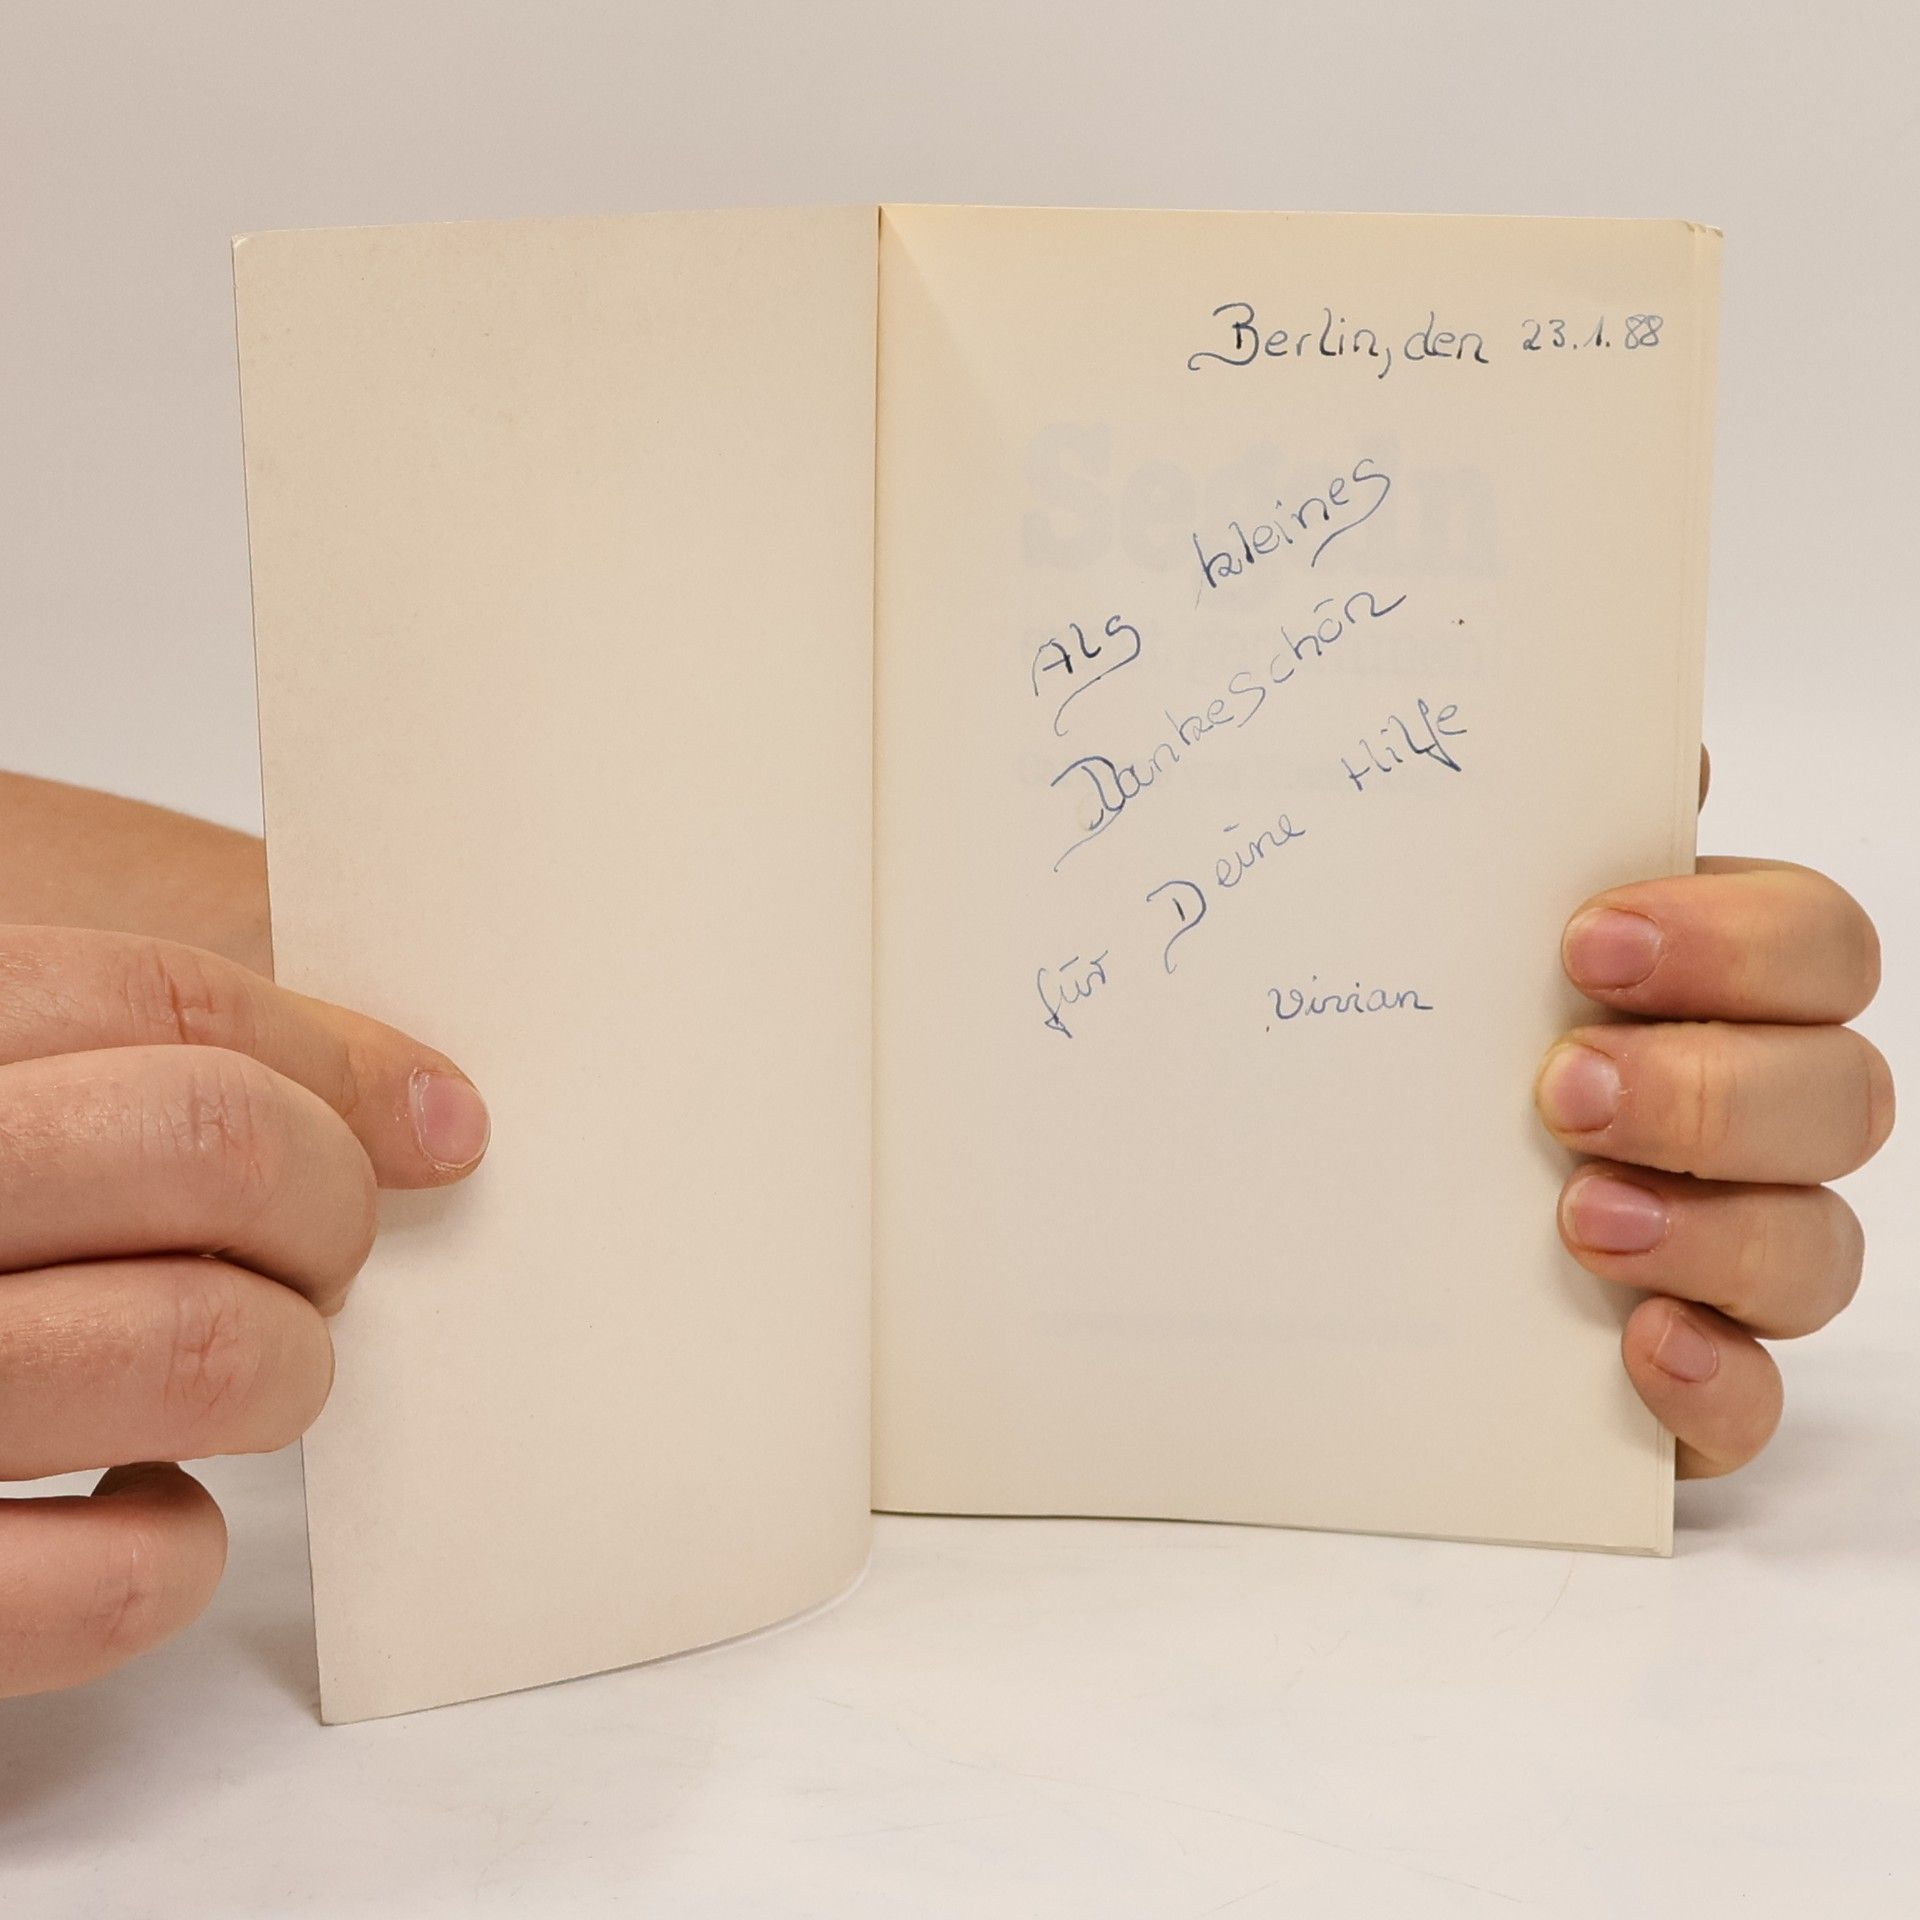 Berlin, den 23.1.88
Als kleines
Dankeschön
für Deine Hilfe
Vivian